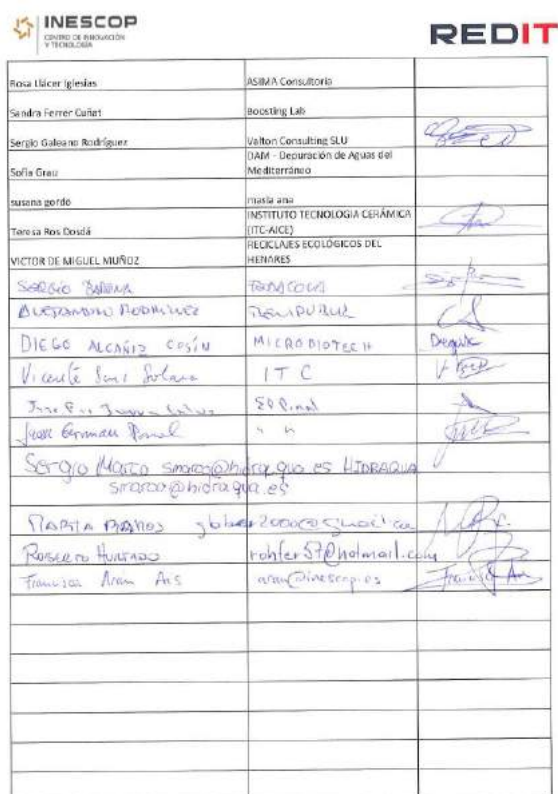 INESCOP
CENTRO DE INNOVACIÓN
Y TECNOLOGÍA
REDIT
Rosa Llácer Iglesias ASIMA Consultoria
Sandra Ferrer Cuñat Boosting Lab
Sergio Galeano Rodríguez Valton Consulting SLU
Sofia Grau DAM - Depuración de Aguas del
Mediterráneo
susana gordo masia ana
Teresa Ros Dosdá INSTITUTO TECNOLOGIA CERÁMICA
(ITC-AICE)
VICTOR DE MIGUEL MUÑOZ RECICLAJES ECOLÓGICOS DEL
HENARES
SERGIO
DIEGO ALCAÑIZ COSÍN MICROBIOTECH
Vicente ITC
Juan German
Sergio Marco smarco@hidraqua.es HIDRAQUA
smarco@hidraqua.es
MARTA
ROBERTO HURTADO rohfer57@hotmail.com
Francisca Aran Ais aran@inescop.es